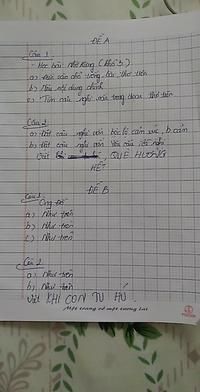 ĐỀ A
Câu 1
- Học bài Nhớ Rừng (khổ 3)
a) Đưa vào chỗ trống bài thơ trên
b) Nêu nội dung chính
c) Tìm câu nghi vấn trong đoạn thơ trên
Câu 2
a) Đặt câu nghi vấn bộc lộ cảm xúc, t.cảm
b) Đặt câu nghi vấn yêu cầu, đề nghị
Viết QUÊ HƯƠNG
HẾT
ĐỀ B
Câu 1
Ông đồ
a) Như trên
b) Như trên
c) Như trên
Câu 2
a) Như trên
b) Như trên
Viết KHI CON TU HÚ
Một trang vở một tương lai